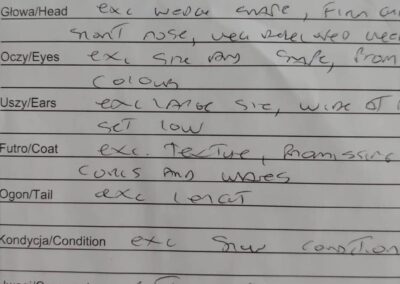 Głowa/Head exc wedge shape, Firm chi
short nose, well developed
Oczy/Eyes exc size and shape, prom
colour
Uszy/Ears exc large size, wide at
set low
Futro/Coat exc. texture, Promissing
curls and waves
Ogon/Tail exc lengt
Kondycja/Condition exc show condition